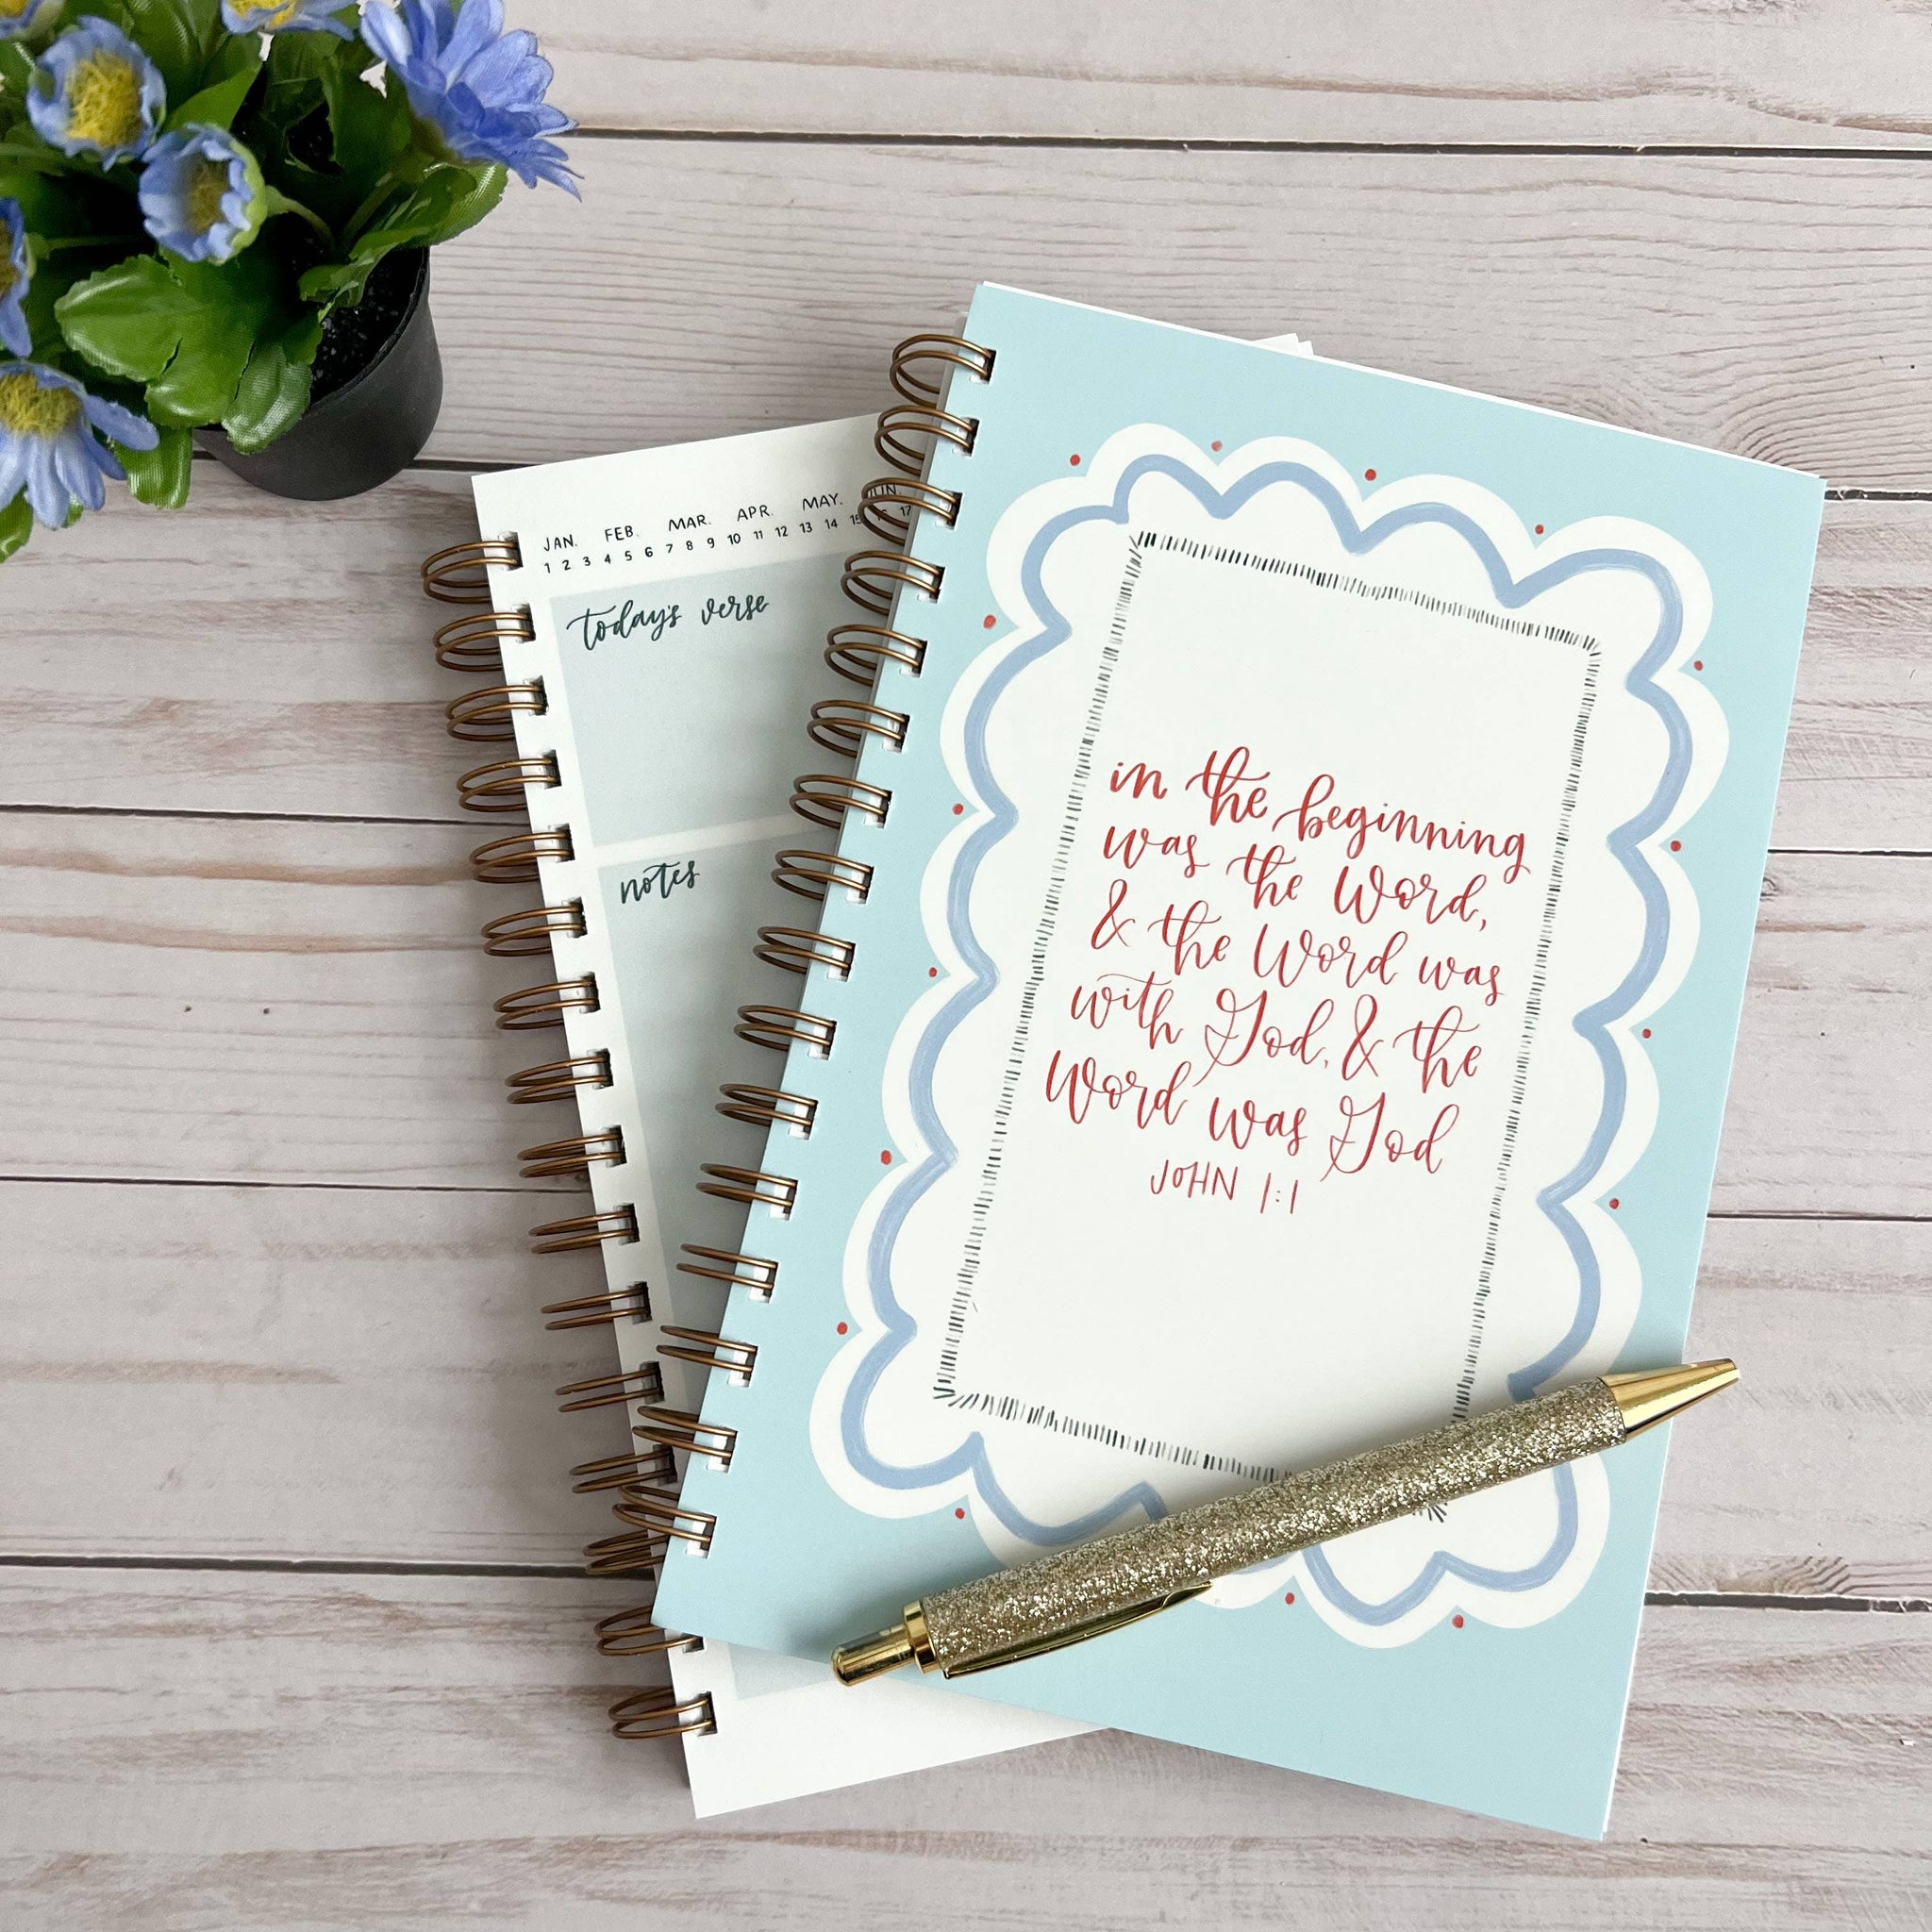 JAN. FEB. MAR. APR. MAY. JUN.
1 2 3 4 5 6 7 8 9 10 11 12 13 14 15 16 17
today's verse
notes
in the beginning
was the Word,
& the Word was
with God, & the
Word was God
JOHN 1:1